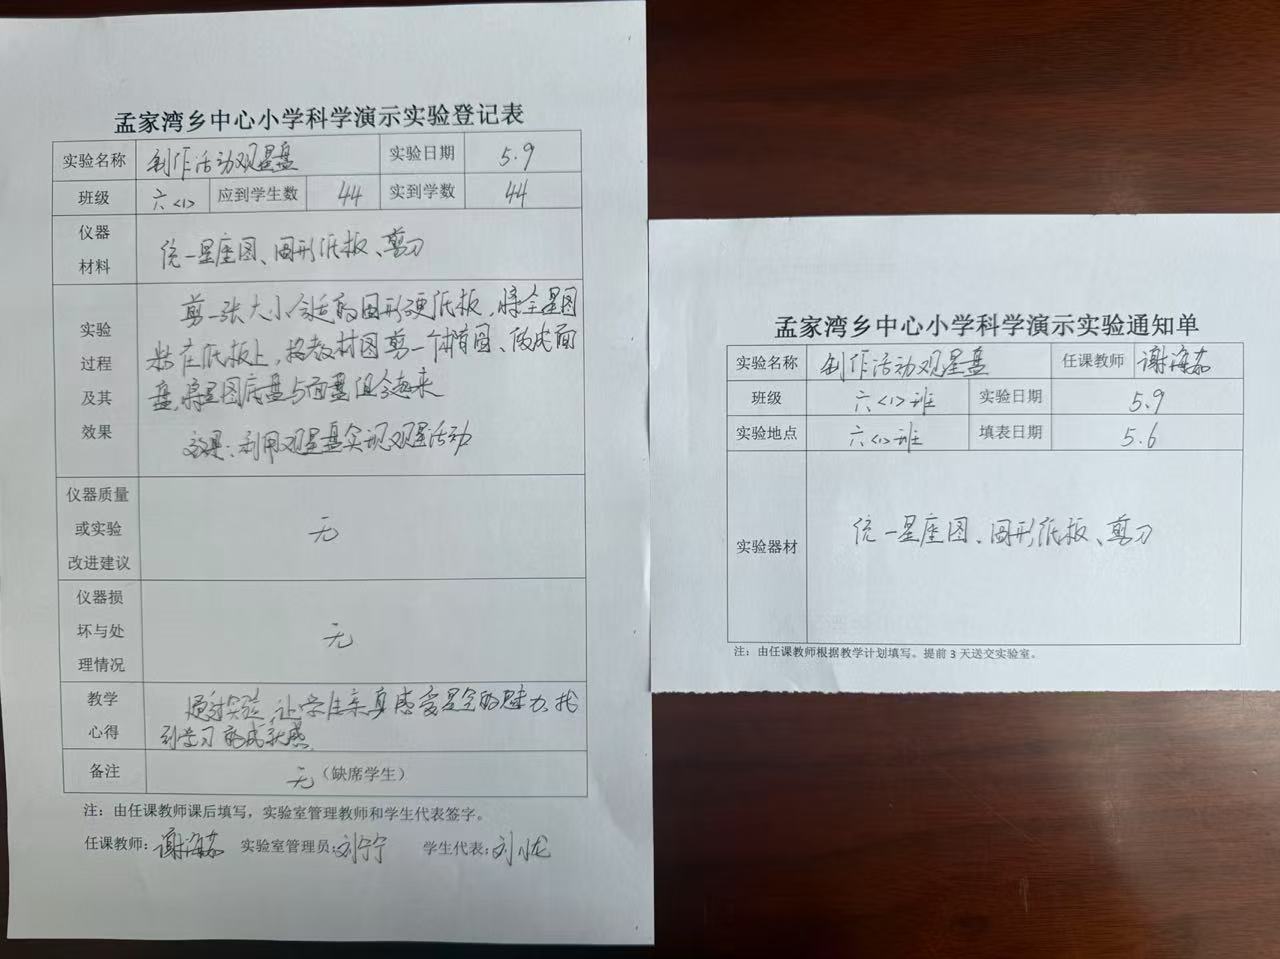 孟家湾乡中心小学科学演示实验登记表
实验名称 制作活动观星盘 实验日期 5.9
班级 六<1> 应到学生数 44 实到学数 44
仪器
材料
统一星座图、圆形纸板、剪刀
实验
过程
及其
效果
剪一张大小合适的圆形硬纸板,将全星图
粘在纸板上,按教材图剪一个椭圆、做成面
盘,将星图底盘与面盘组合起来
效果:利用观星盘实现观星活动
仪器质量
或实验
改进建议
无
仪器损
坏与处
理情况
无
教学
心得
通过实验,让学生亲身感受星空的魅力,找
到学习的成就感
备注 无(缺席学生)
注:由任课教师课后填写,实验室管理教师和学生代表签字。
任课教师:谢海茹 实验室管理员:刘宁宁 学生代表:刘小龙
孟家湾乡中心小学科学演示实验通知单
实验名称 制作活动观星盘 任课教师 谢海茹
班级 六<1>班 实验日期 5.9
实验地点 六<1>班 填表日期 5.6
实验器材 统一星座图、圆形纸板、剪刀
注:由任课教师根据教学计划填写。提前 3 天送交实验室。